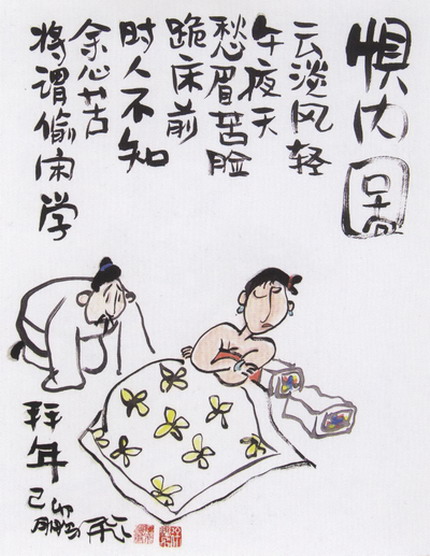 惧内图
云淡风轻
午夜天
愁眉苦脸
跪床前
时人不知
余心苦
将谓偷闲学
拜年
己卯